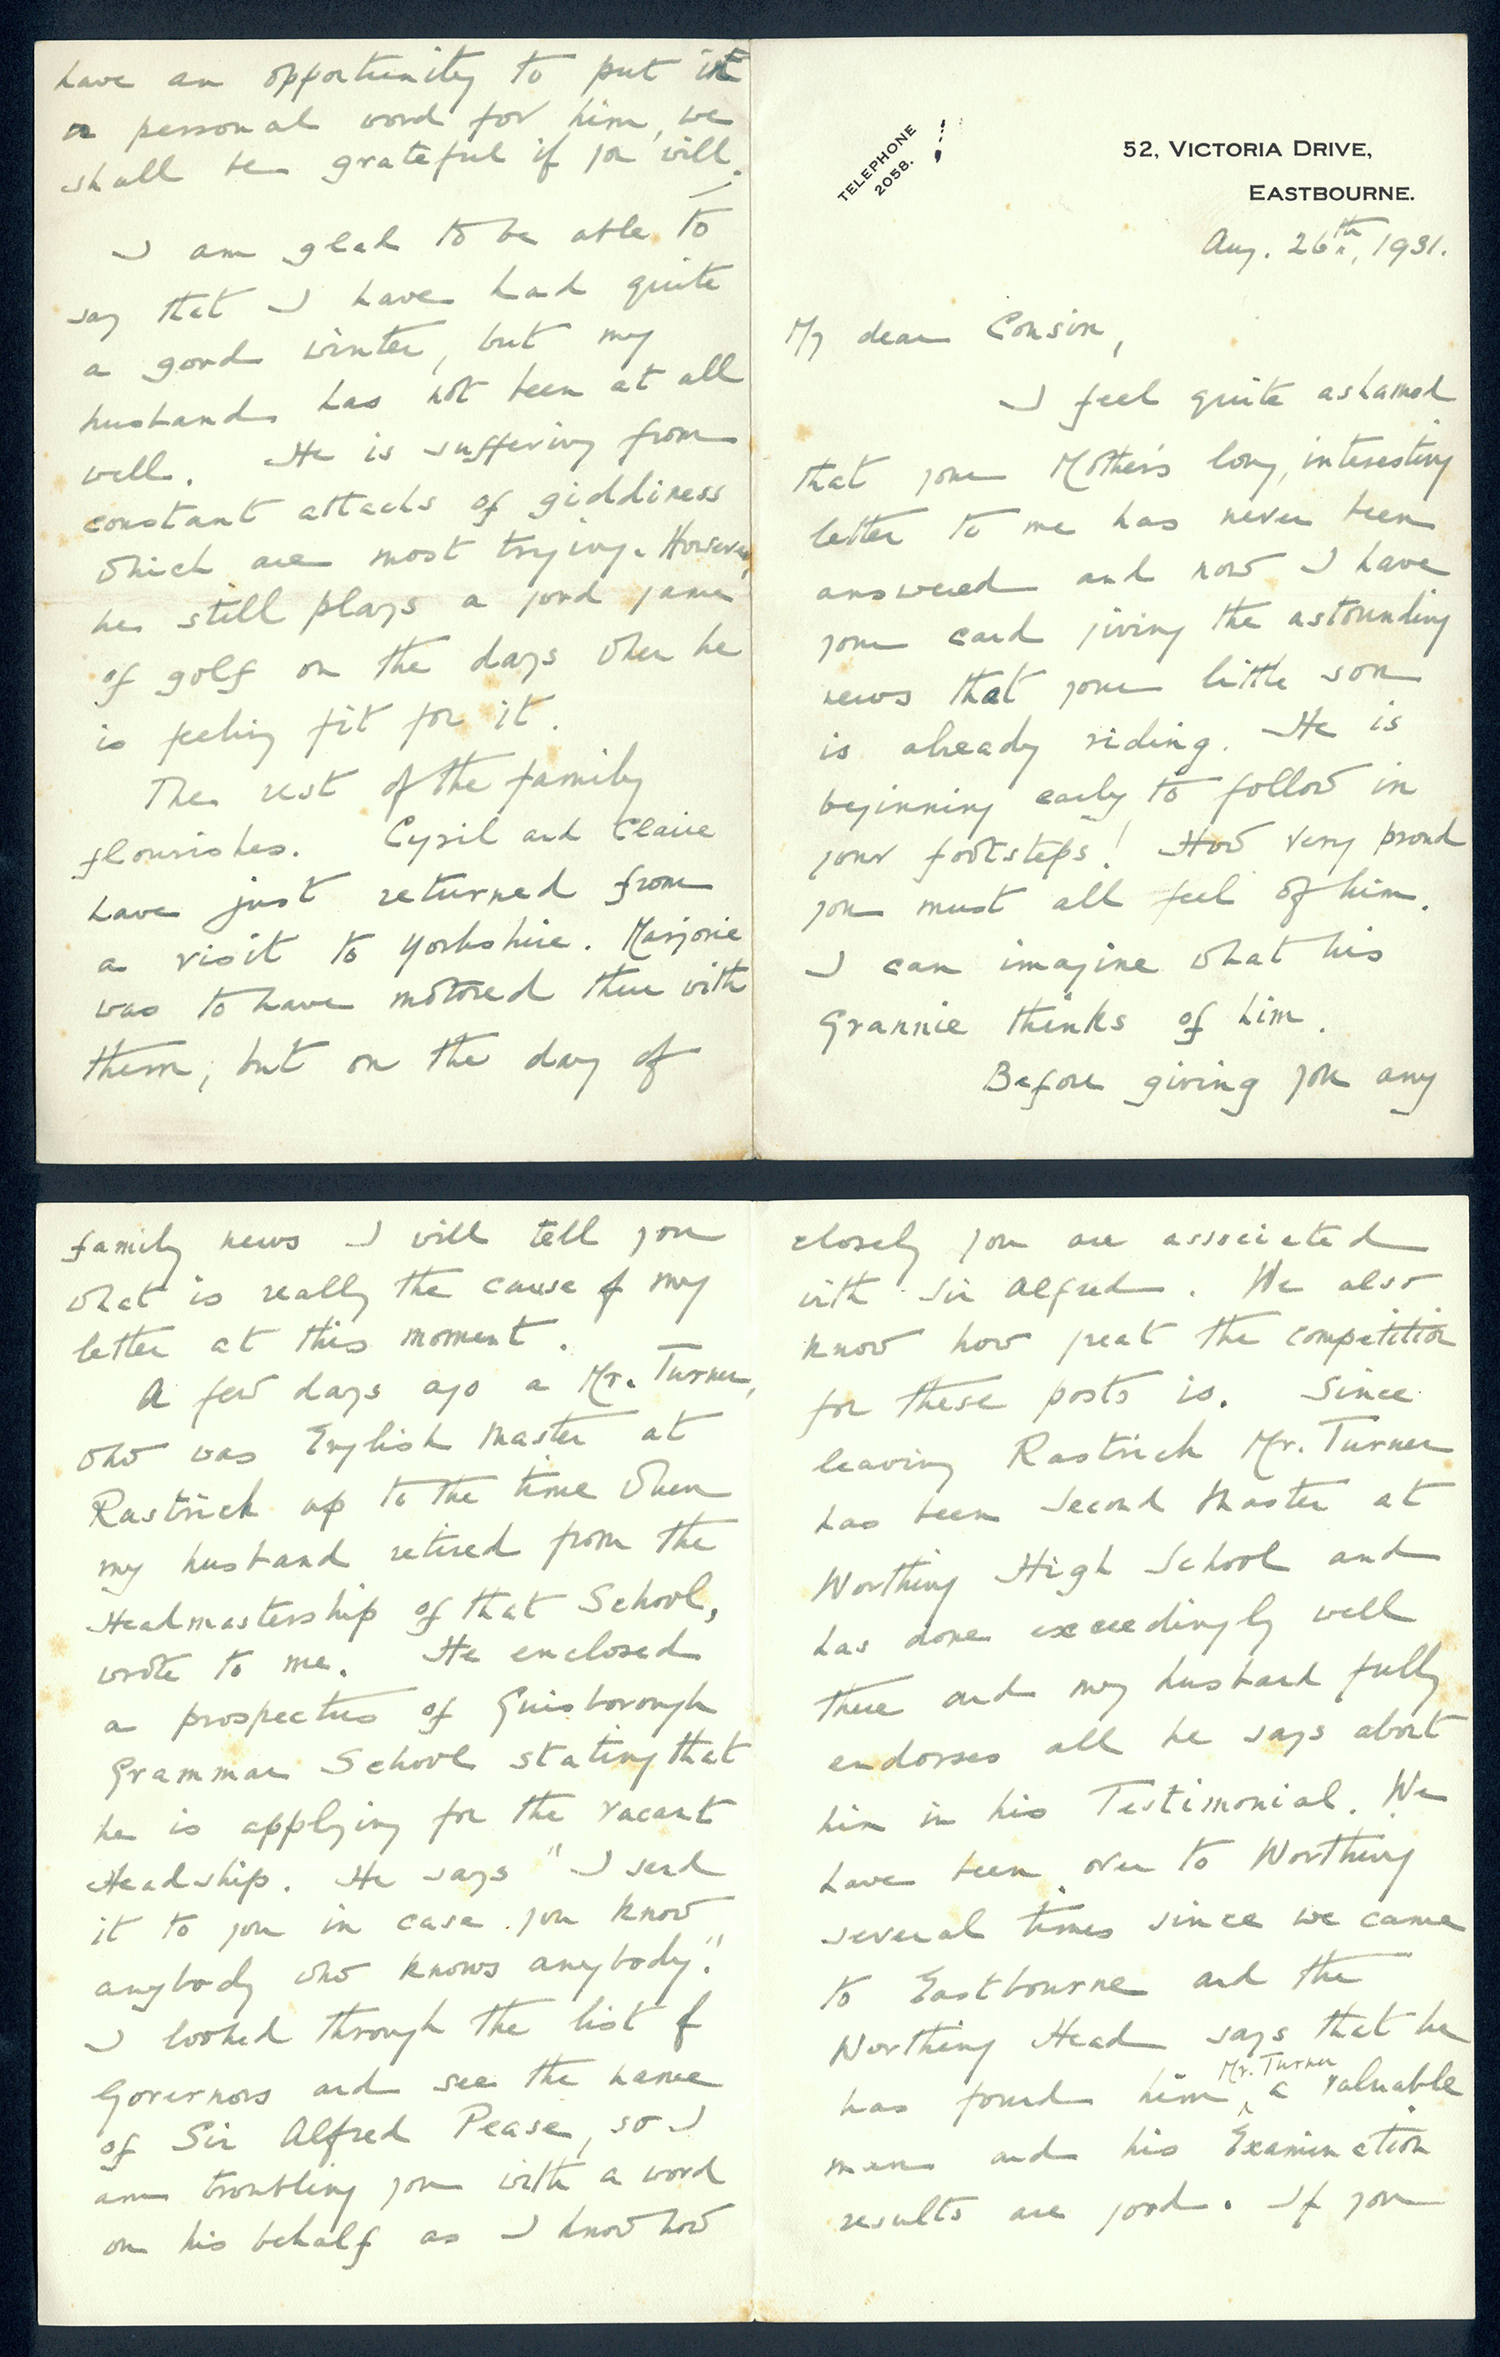 TELEPHONE
2058.
52, VICTORIA DRIVE,
EASTBOURNE.
Aug. 26th, 1931.
My dear Cousin,
I feel quite ashamed
that your Mother's long, interesting
letter to me has never been
answered and now I have
your card giving the astounding
news that your little son
is already riding. He is
beginning early to follow in
your footsteps! How very proud
you must all feel of him.
I can imagine what his
Grannie thinks of him.
Before giving you any
family news I will tell you
what is really the cause of my
letter at this moment.
A few days ago a Mr. Turner,
who was English Master at
Rastrick up to the time when
my husband retired from the
Headmastership of that School,
wrote to me. He enclosed
a prospectus of Guisborough
Grammar School stating that
he is applying for the vacant
Headship. He says "I send
it to you in case you know
anybody who knows anybody."
I looked through the list of
Governors and see the name
of Sir Alfred Pease, so I
am troubling you with a word
on his behalf as I know how
closely you are associated
with Sir Alfred. We also
know how great the competition
for these posts is. Since
leaving Rastrick Mr. Turner
has been Second Master at
Worthing High School and
has done exceedingly well
there and my husband fully
endorses all he says about
him in his Testimonial. We
have been over to Worthing
several times since we came
to Eastbourne and the
Worthing Head says that he
has found him, Mr. Turner a valuable
man and his Examination
results are good. If you
have an opportunity to put in
a personal word for him, we
shall be grateful if you will.
I am glad to be able to
say that I have had quite
a good winter, but my
husband has not been at all
well. He is suffering from
constant attacks of giddiness
which are most trying. However,
he still plays a good game
of golf on the days when he
is feeling fit for it.
The rest of the family
flourishes. Cyril and Claire
have just returned from
a visit to Yorkshire. Marjorie
was to have motored there with
them, but on the day of